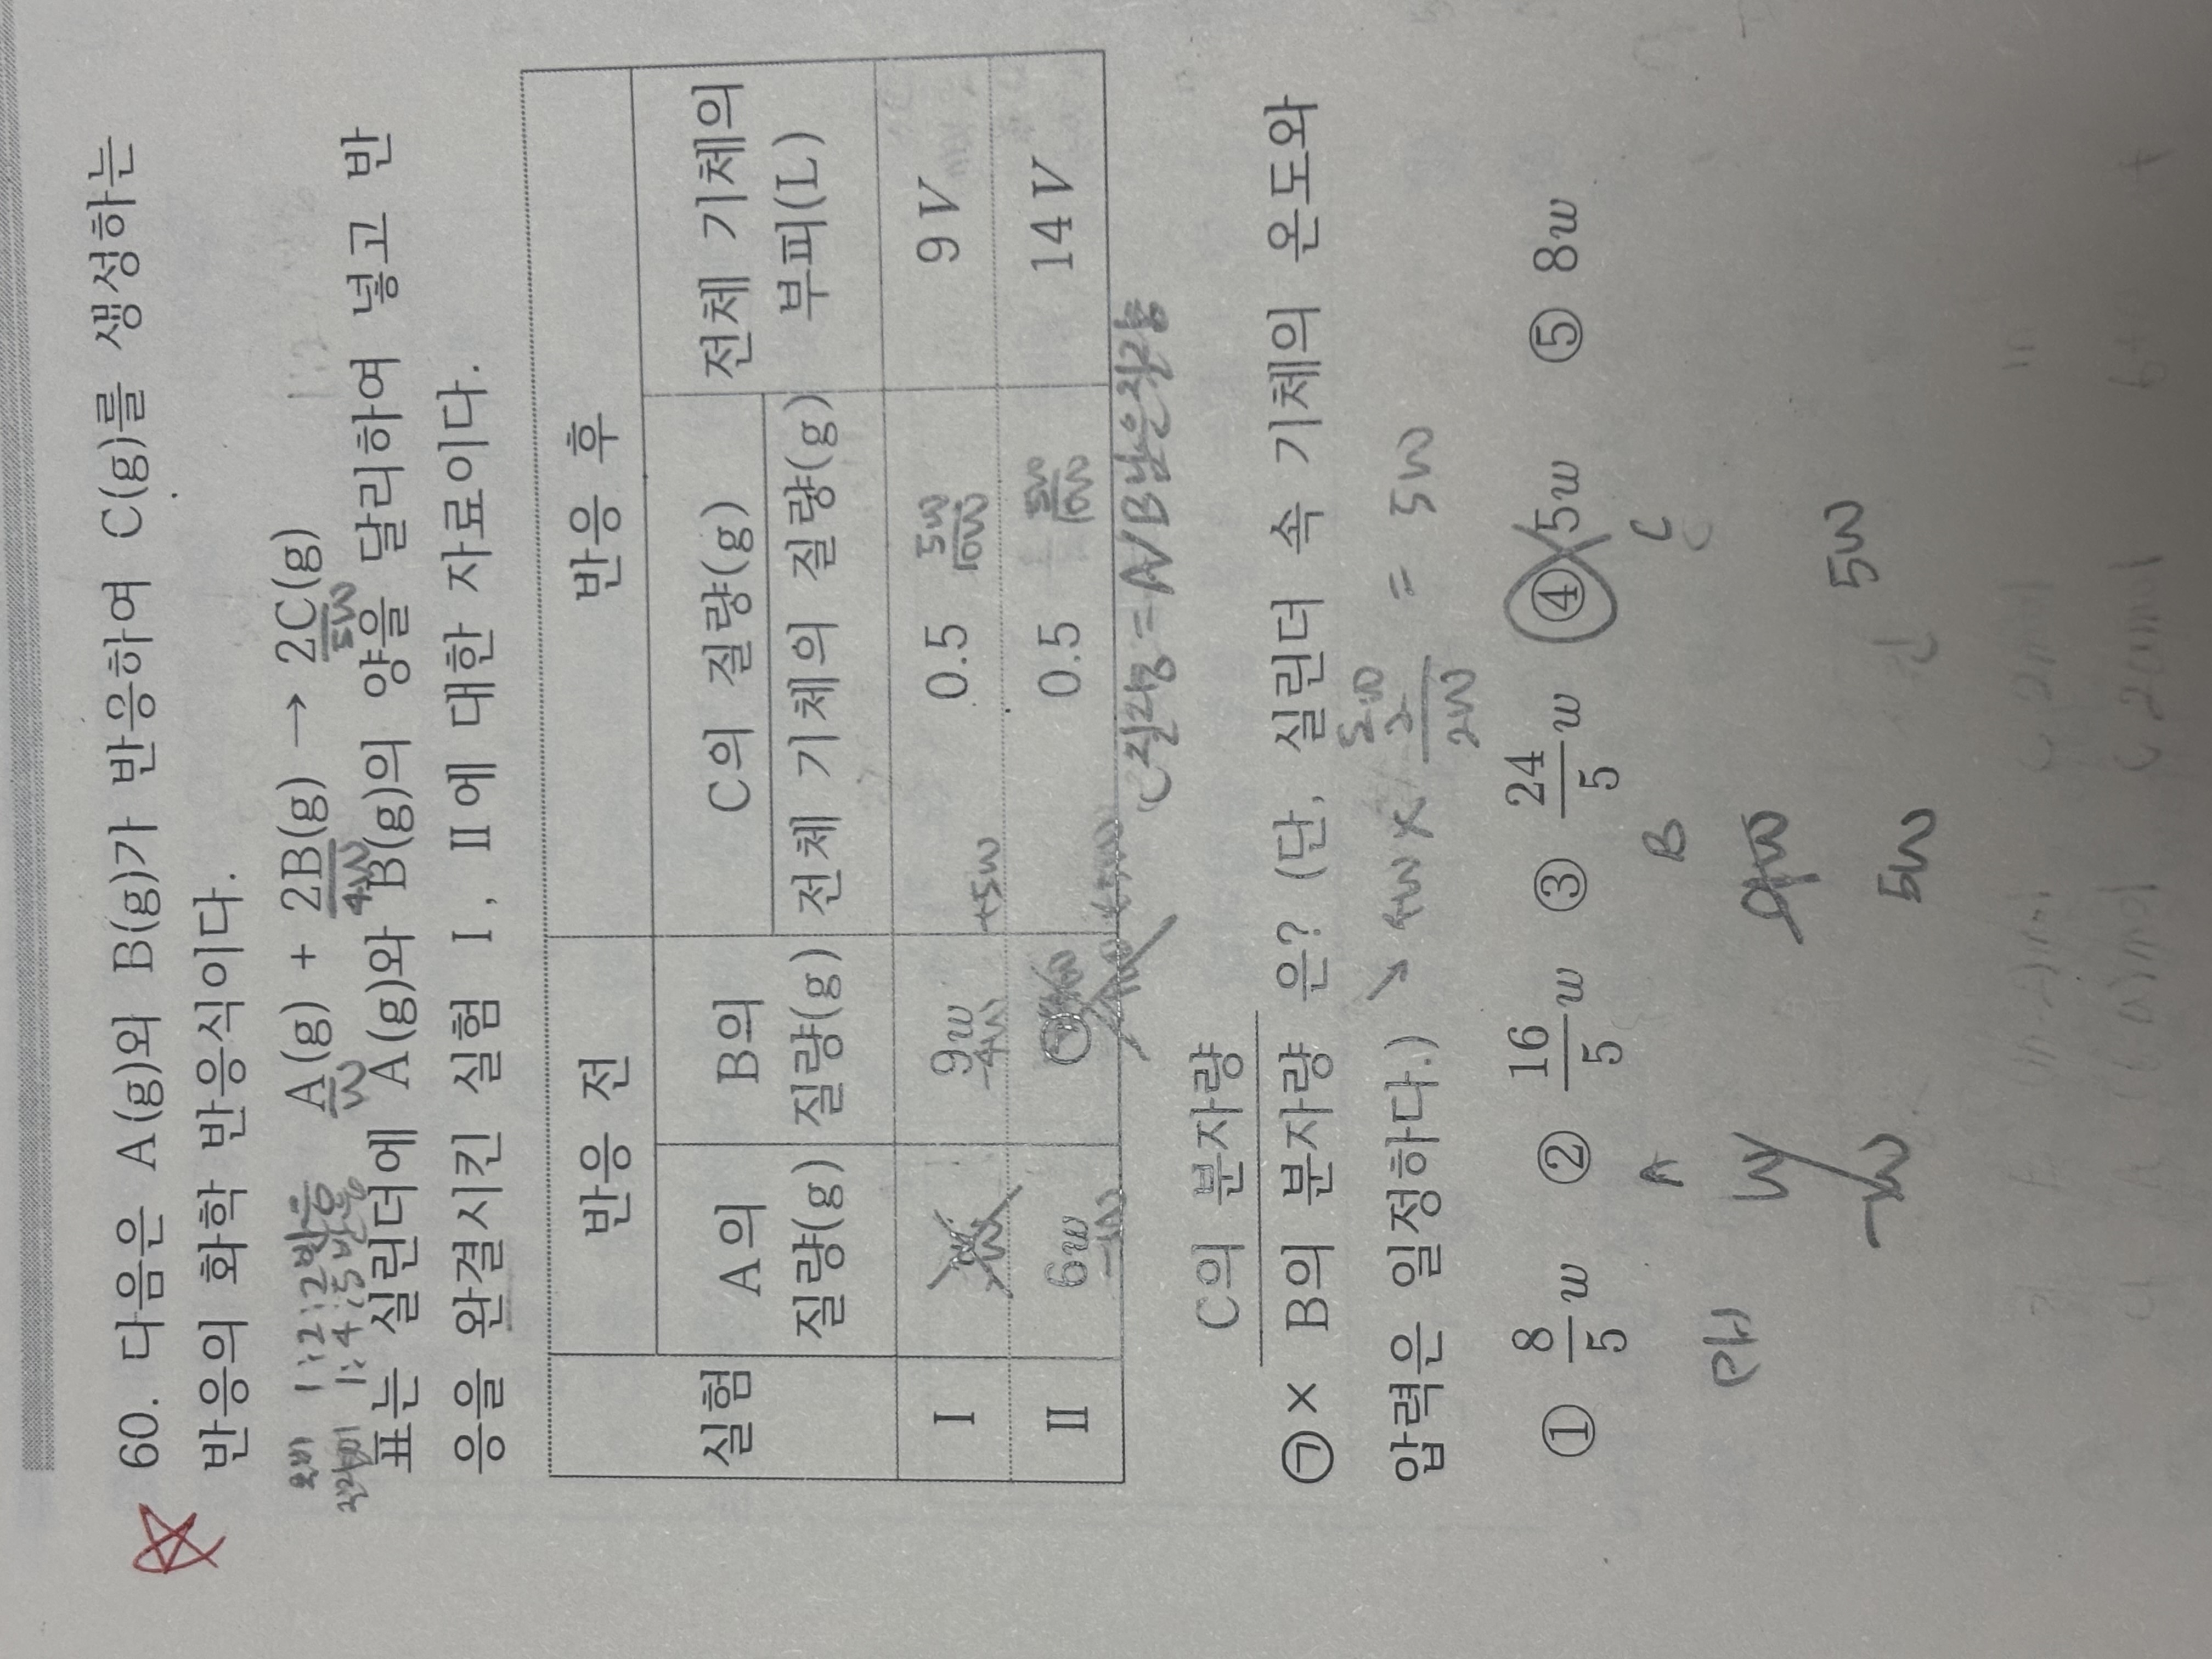 60. 다음은 A(g)와 B(g)가 반응하여 C(g)를 생성하는
반응의 화학 반응식이다.
1:2:2 반응
A(g) + 2B(g) → 2C(g)
1:4:5 반응
w 4w 5w
표는 실린더에 A(g)와 B(g)의 양을 달리하여 넣고 반
응을 완결시킨 실험 Ⅰ, Ⅱ에 대한 자료이다.
실험 반응 전 반응 후
A의 질량(g) B의 질량(g) C의 질량(g) / 전체 기체의 질량(g) 전체 기체의 부피(L)
Ⅰ w 9w 0.5 5w/10w 9V
-4w +5w
Ⅱ 6w ㉠ 0.5 5w/10w 14V
-w
C질량 = A/B 남은질량
㉠ × C의 분자량 / B의 분자량 은? (단, 실린더 속 기체의 온도와
압력은 일정하다.)
→ 4w × 5/2w / 2w = 5w
① 8/5w ② 16/5w ③ 24/5w ④ 5w ⑤ 8w
A B C
w 9w
-w 5w 5w